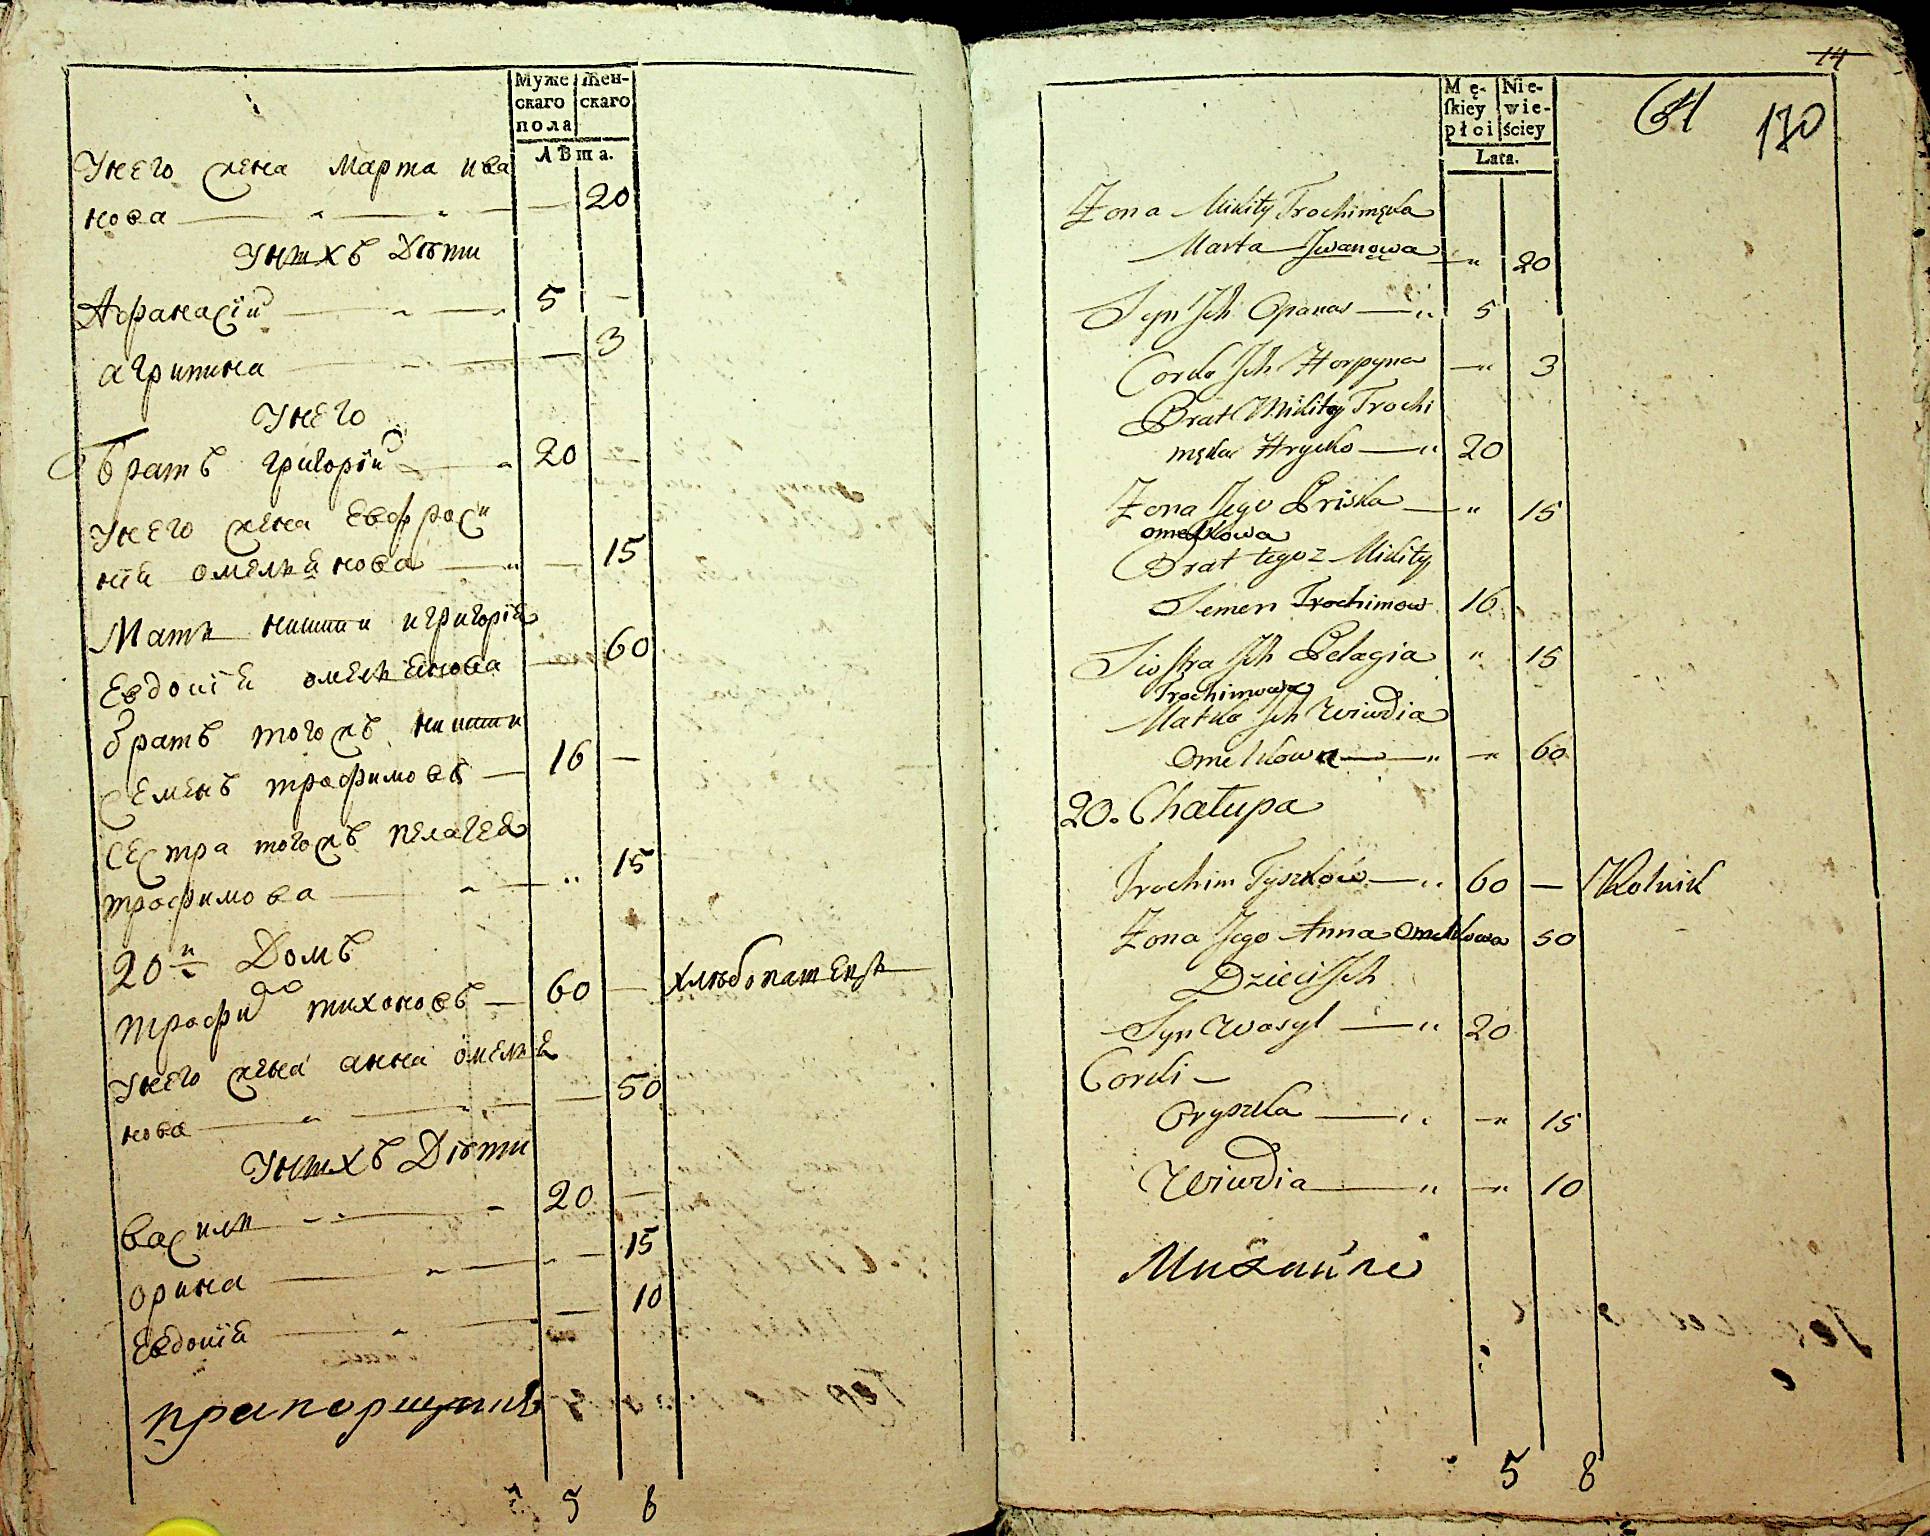 Муже скаго пола
Жен- скаго
Лѣта.
Унего жена Марта ива
нова 20
Унихъ Дѣти
Афанасїй 5
агрипина 3
Унего
братъ григорїй 20
Унего жена Евфроси
нїя омельянова 15
Мать никиты и григорїя
Евдокїя омельянова 60
братъ тогожъ никиты
Семенъ трофимовъ 16
Сестра тогожъ пелагея
трофимова 15
20й Домъ
трофим тихоновъ 60 хлѣбопашецъ
Унего жена анна омелья
нова 50
Унихъ Дѣти
василь 20
орина 15
Евдокїя 10
прапорщикъ
5 8
14
64 130
Mę- skiey płci
Nie- wie- ściey
Lata.
Żona Mikity Trochimęka
Marta Iwanowa 20
Syn Ich Opanas 5
Corka Ich Horpyna 3
Brat Mikity Trochi
męka Hryćko 20
Żona Jego Priska 15
omelkowa
Brat tegoż Mikity
Semen Trochimow 16
Siostra Ich Pelagia 15
Trochimowa
Matka Ich Wiwdia
Omelkowa 60
20. Chałupa
Trochim Tyszków 60 — Rolnik
Żona Jego Anna Omelkowa 50
Dzieci Ich
Syn Wasyl 20
Corki —
Oryszka 15
Wiwdia 10
Михайло
5 8